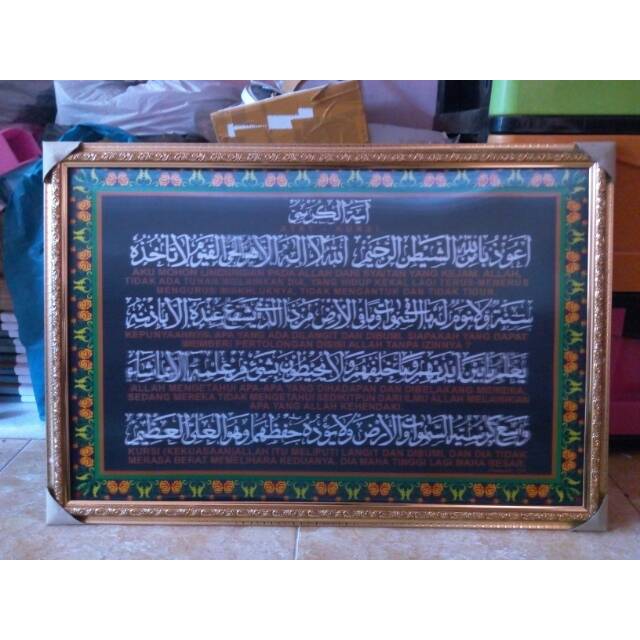 آية الكرسي
أعوذ بالله من الشيطن الرجيم الله لا إله إلا هو الحي القيوم لا تأخذه
AKU MOHON LINDUNGAN PADA ALLAH DARI SYAITAN YANG KEJAM. ALLAH,
TIDAK ADA TUHAN MELAINKAN DIA, YANG HIDUP KEKAL LAGI TERUS-MENERUS
MENGURUS MAKHLUKNYA, TIDAK MENGANTUK DAN TIDAK TIDUR.
سنة ولا نوم له ما في السموات وما في الأرض من ذا الذي يشفع عنده إلا بإذنه
KEPUNYAANNYA, APA YANG ADA DILANGIT DAN DIBUMI. SIAPAKAH YANG DAPAT
MEMBERI PERTOLONGAN DISISI ALLAH TANPA IZINNYA ?
يعلم ما بين أيديهم وما خلفهم ولا يحيطون بشيء من علمه إلا بما شاء
ALLAH MENGETAHUI APA-APA YANG DIHADAPAN DAN DIBELAKANG MEREKA,
SEDANG MEREKA TIDAK MENGETAHUI SEDIKITPUN DARI ILMU ALLAH MELAINKAN
APA YANG ALLAH KEHENDAKI
وسع كرسيه السموات والأرض ولا يؤده حفظهما وهو العلي العظيم
KURSI (KEKUASAAN)ALLAH ITU MELIPUTI LANGIT DAN DIBUMI, DAN DIA TIDAK
MERASA BERAT MEMELIHARA KEDUANYA, DIA MAHA TINGGI LAGI MAHA BESAR.